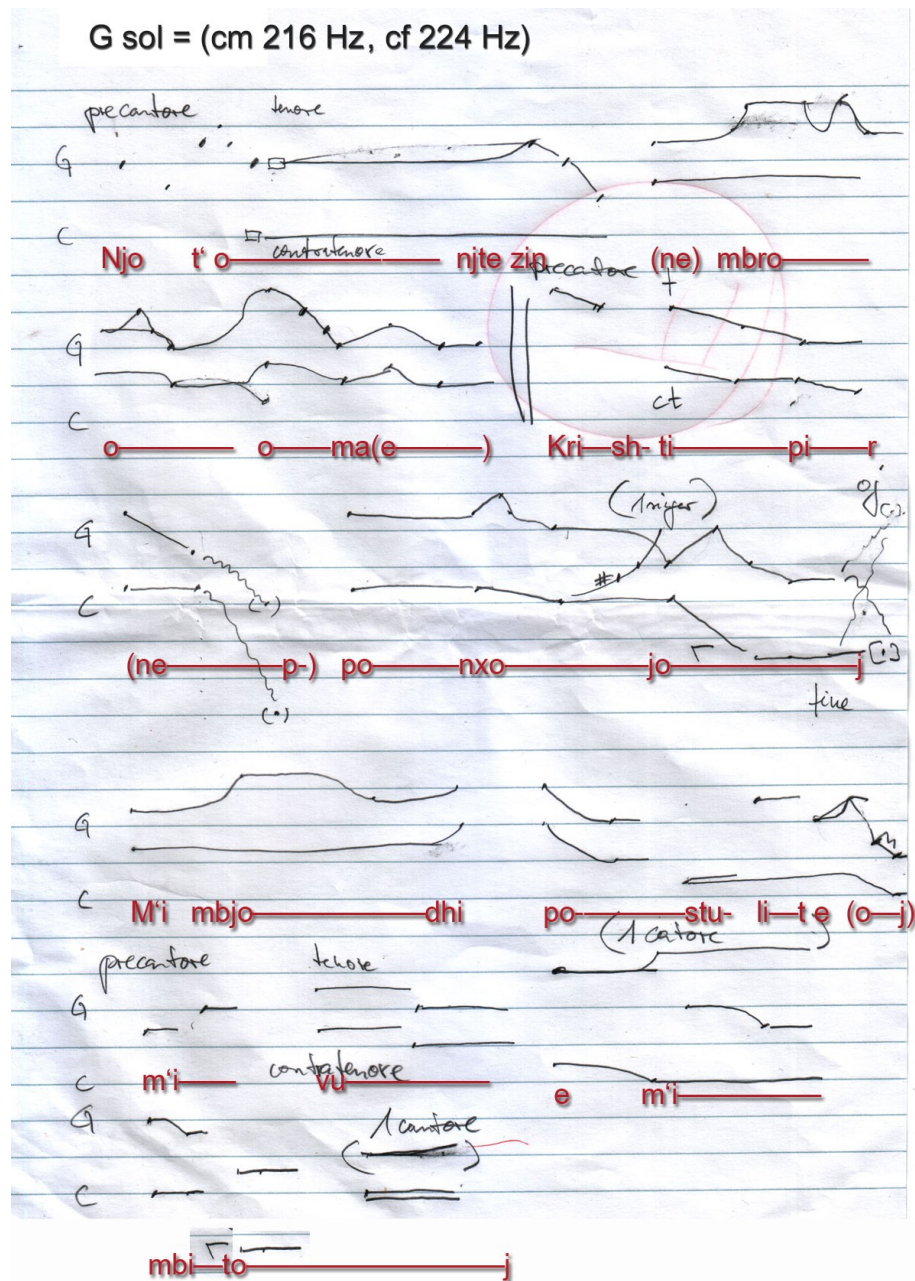 G sol = (cm 216 Hz, cf 224 Hz)
precantore tenore
G
C contratenore
Njo t' o njte zip (ne) mbro
precantore
G
ct
C
o o ma(e ) Kri sh- ti pi r
G
C #
(ne p-) po nxo jo j
fine
G
C
M'i mbjo dhi po stu- li t e (o j)
precantore tenore
G
C contratenore
m'i vu e m'i
G 1 cantore
C
mbi to j